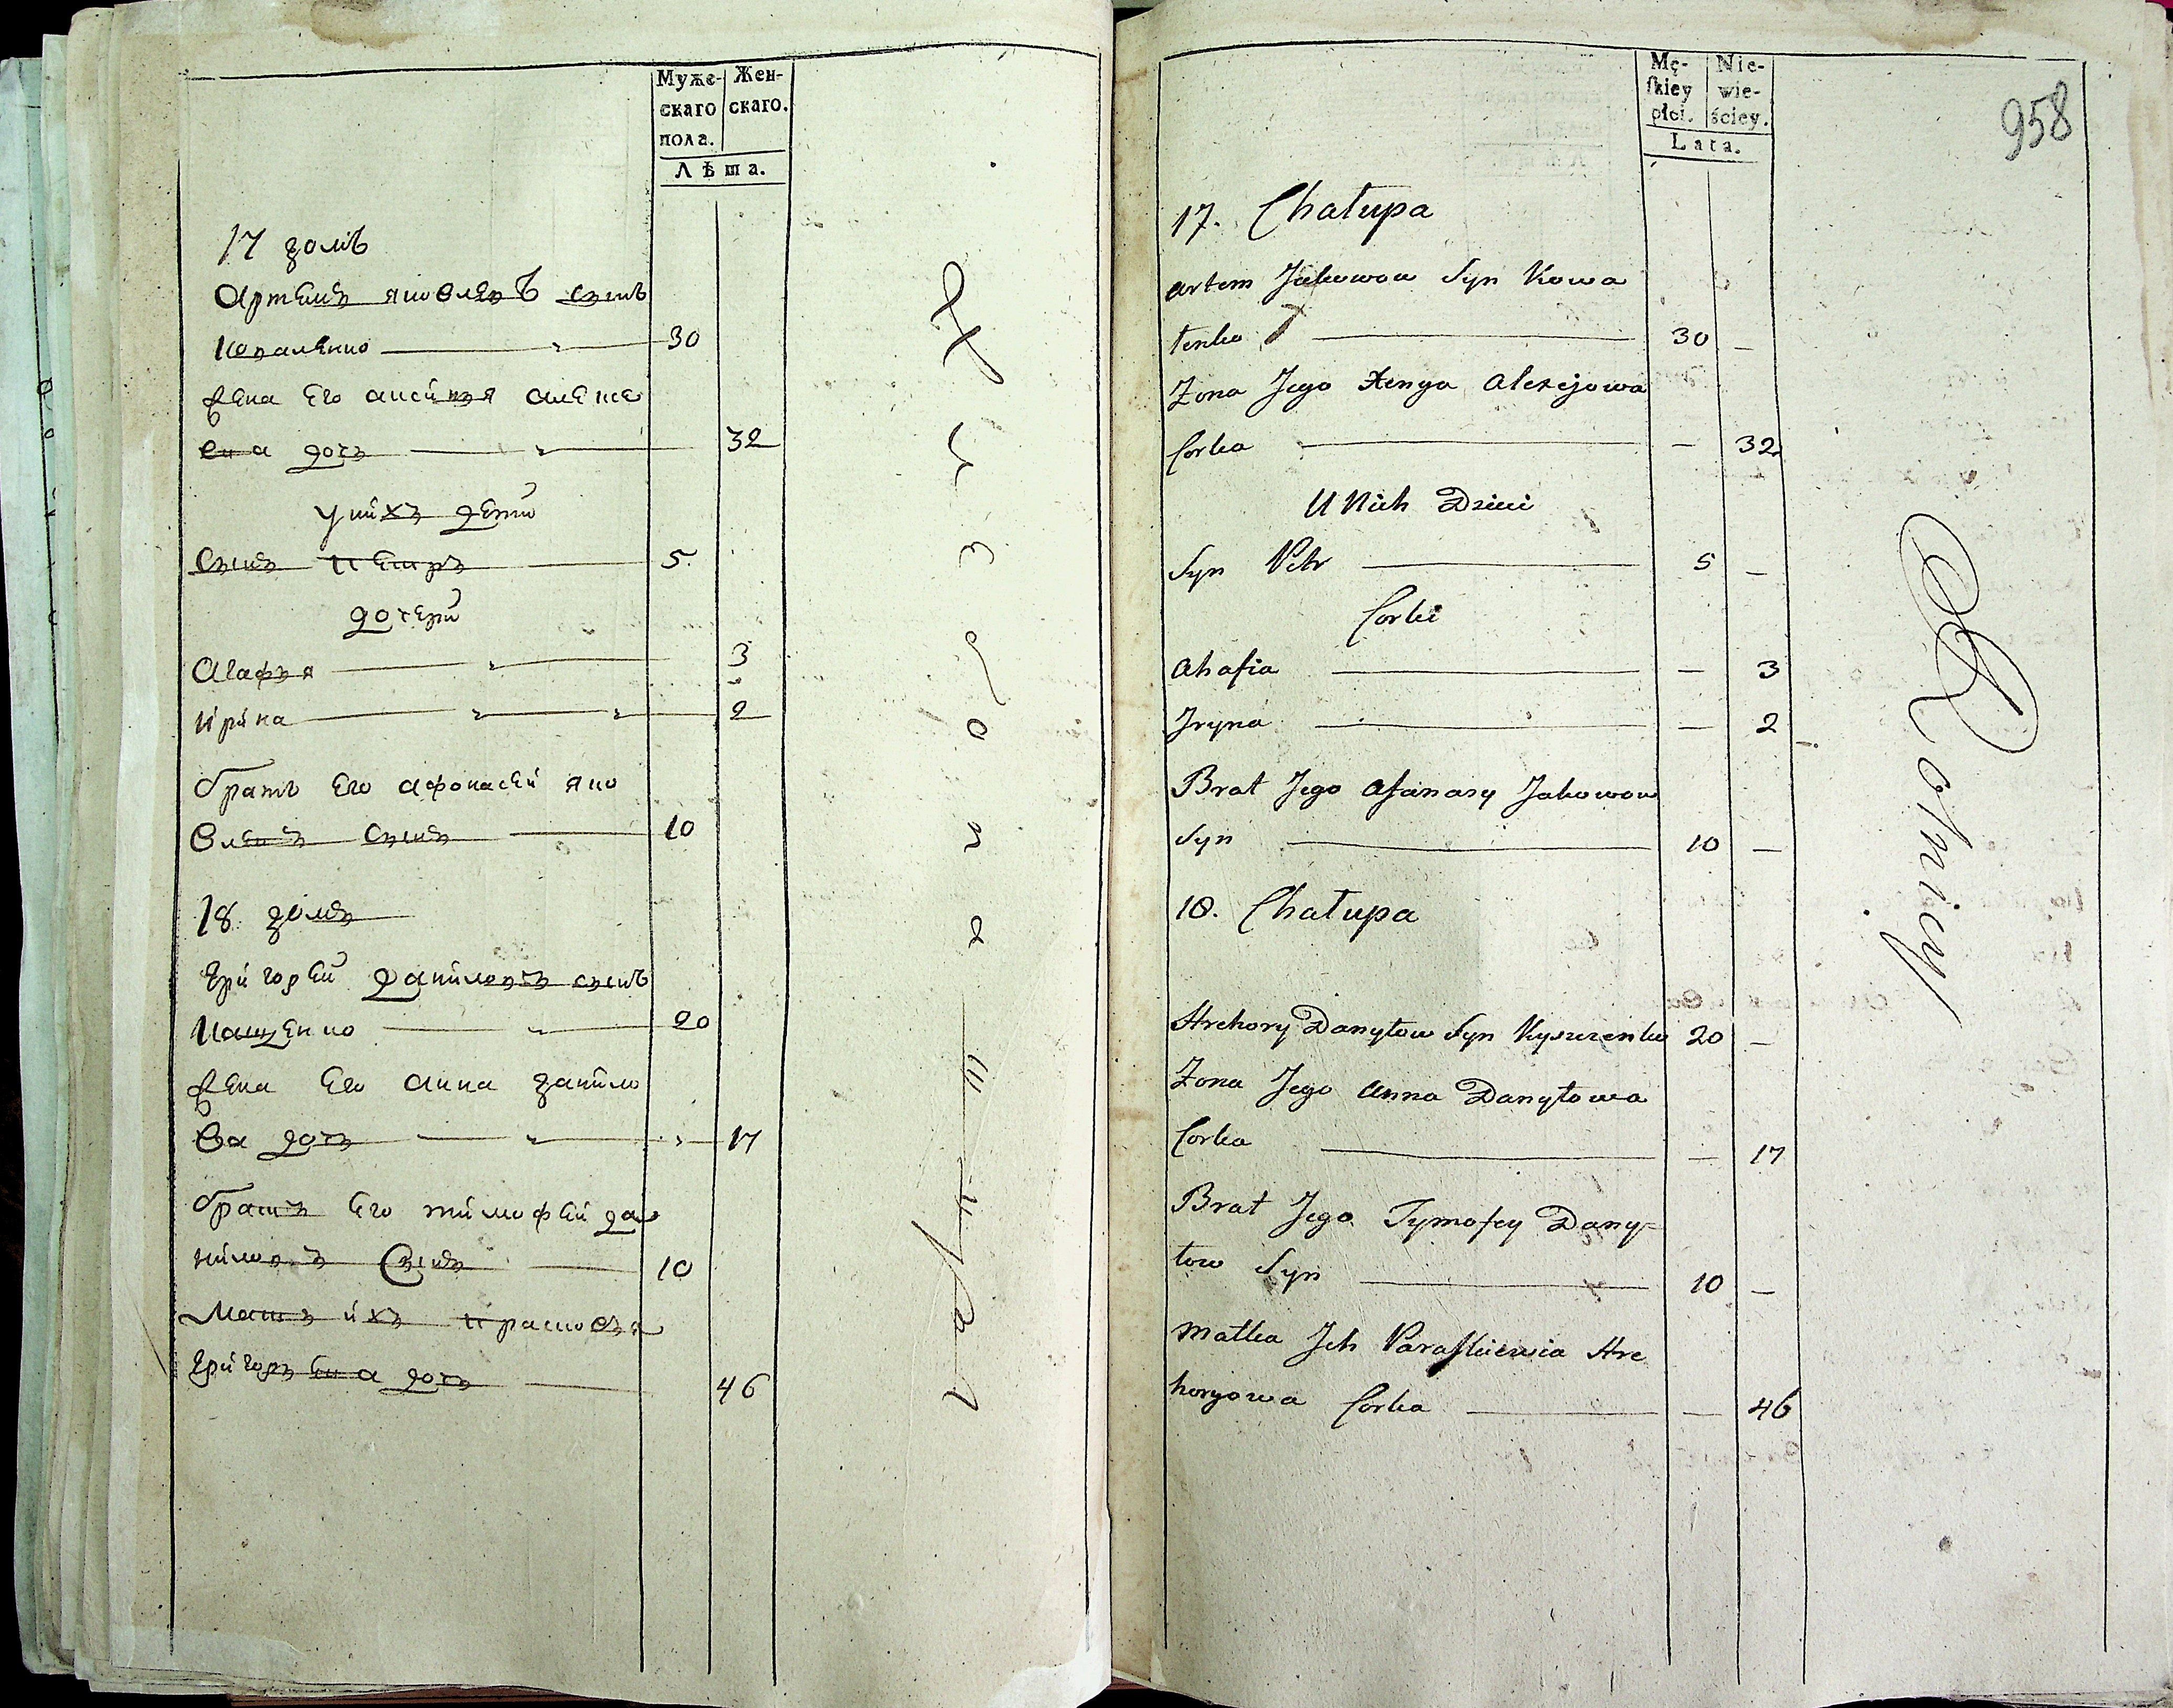 Муже-
скаго
пола.
Жен-
скаго.
Лѣта.
17 домъ
Артемъ яковлевъ сынъ
коваленко 30
жена его аксинъя алексе
евна дочъ 32
у нихъ дети
Сынъ петръ 5
дочери
Агафъя 3
ирина 2
братъ его афонасей яко
влевъ сынъ 10
18 домъ
григорей даниловъ сынъ
кащенко 20
жена его анна данило
ва дочъ 17
братъ его тимофей да
ниловъ Сынъ 10
Матъ ихъ прасковъя
григоръевна дочъ 46
958
Mę-
skiey
płci.
Nie-
wie-
ściey.
Lata.
17. Chałupa
Artem Jakowow Syn Kowa
lenko 30 —
Żona Jego Xenya Alexejowa
Corka — 32
U Nich Dzieci
Syn Petr 5 —
Corki
Ahafia — 3
Jryna — 2
Brat Jego Afanasy Jakowow
Syn 10 —
18. Chałupa
Hrehory Danyłow Syn Kyszczenko 20 —
Żona Jego Anna Danyłowa
Corka — 17
Brat Jego Tymofey Dany=
łow Syn 10 —
Matka Jch Paraskiewia Hre
horyowa Corka — 46
Rotnicy